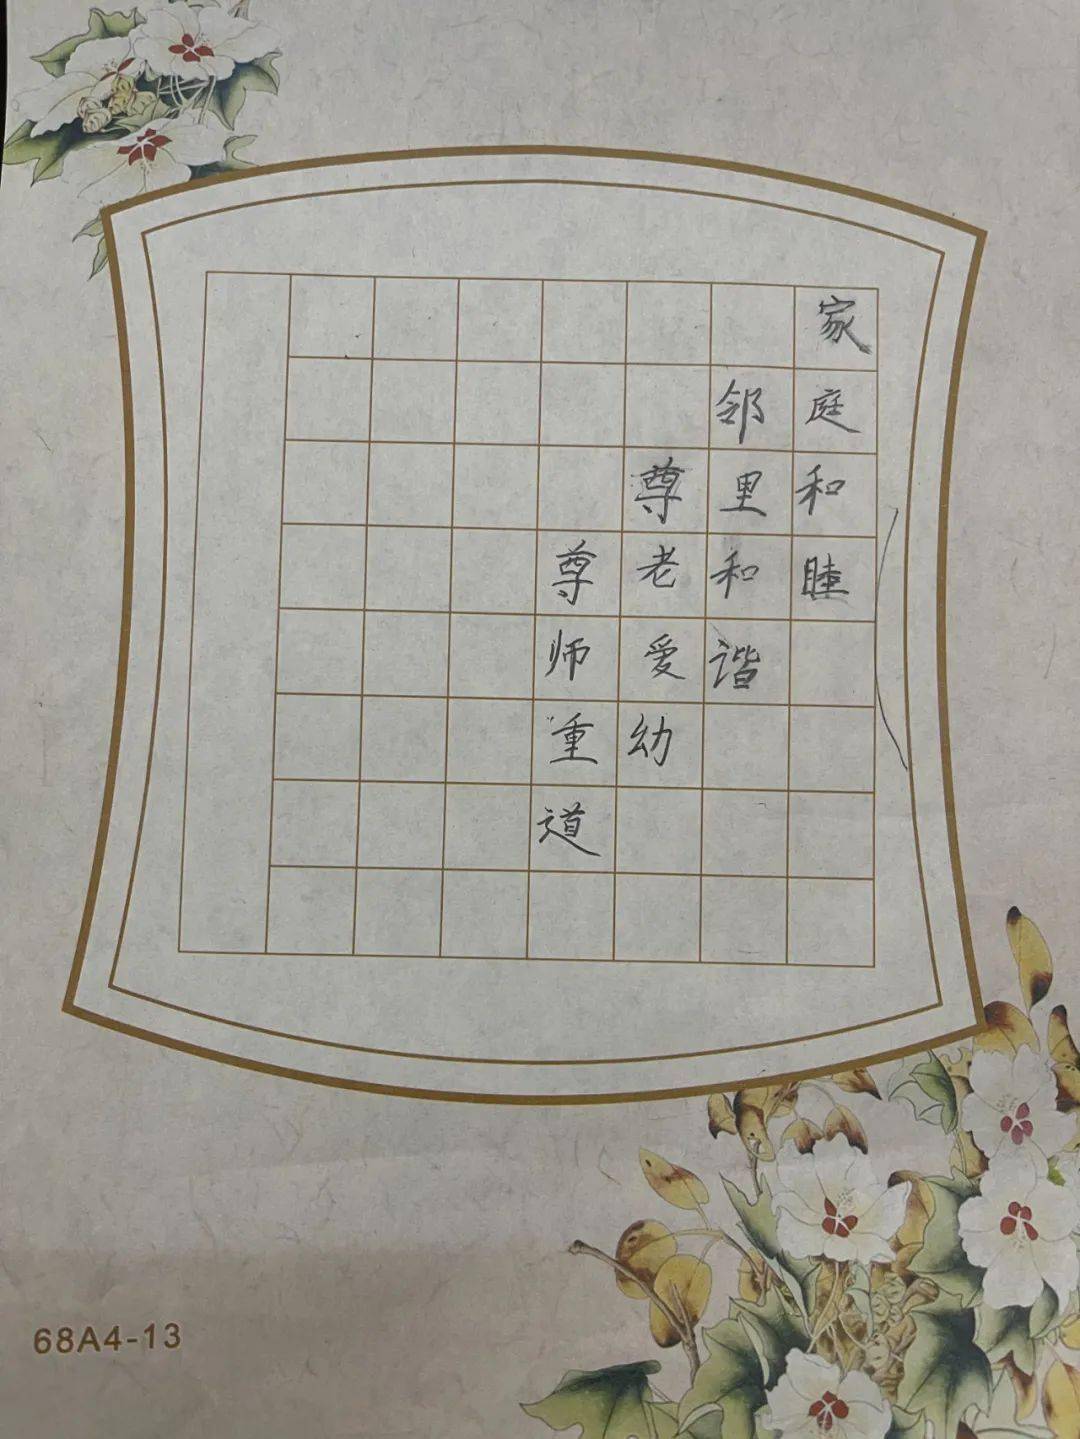 家庭和睦
邻里和谐
尊老爱幼
尊师重道
68A4-13